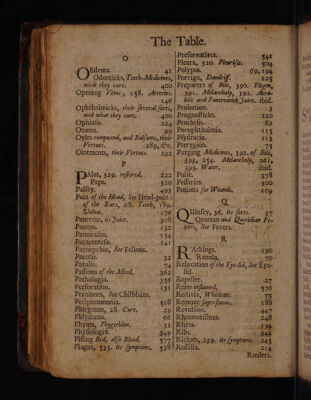 The Table.
O
OEdema. 42
Odonticks, Teeth-Medicines,
what they cure. 400
Opening Veins, 158. Arteries.
146
Ophthalmicks, their several sorts,
and what they cure. 400
Ophiasis. 224
Otæna. 99
Oyles compound, and Balsams, their
Virtues. 289, &c.
Ointments, their Virtues. 292
P
Palat, 329. restored. 222
Paps. 320
Palsey. 493
Pain of the Head, See Head-pain:
of the Ears, 68. Teeth, 189.
476
Paperens, its Juice. 308
Pantus. 132
Panniculus. 154
Paracentesis. 141
Paronychia, See Fellons.
Parotis. 32
Parulis. 74
Passions of the Mind. 362
Pathologia. 356
Perforation. 151
Perniones, See Chilblains.
Peripneumonia. 508
Phlegmon, 28. Cure. 29
Phlyctæna. 66
Phyma, Phygethlon. 32
Physiologia. 349
Pissing Bed, also Blood. 577
Plague, 535. its Symptoms. 538
Preservatives. 541
Pleura, 320. Pleurisie. 504
Polypus. 69, 194
Porrigo, Dandriff. 225
Preparers of Bile, 390. Flegm,
391. Melancholy, 392. Acra-
bile and Pancreatick Juice. ibid.
Probation. 3
Prognosticks. 220
Prochesis. 82
Psorophthalmia. 115
Psydracia. 114
Pterygion. 75
Purging Medicines, 392. of Bile,
393, 254. Melancholy, 261,
393. Water. ibid.
Pulse. 378
Ptisicks. 300
Potions for Wounds. 109
Q
QUinsey, 36. its sorts. 37
Quartan and Quotidian Fe-
vers, See Fevers.
R
RAckings. 190
Ranula. 70
Relaxation of the Eye-lid, See Eye-
lid.
Repeller. 27
Reins inflamed. 576
Redivia, Whitloes. 75
Remove superfluous. 188
Revulsion. 447
Rheumatismus. 248
Rhyas. 194
Ribs. 344
Rickets, 239. its symptoms. 245
Rosalia. 214
Roulers.